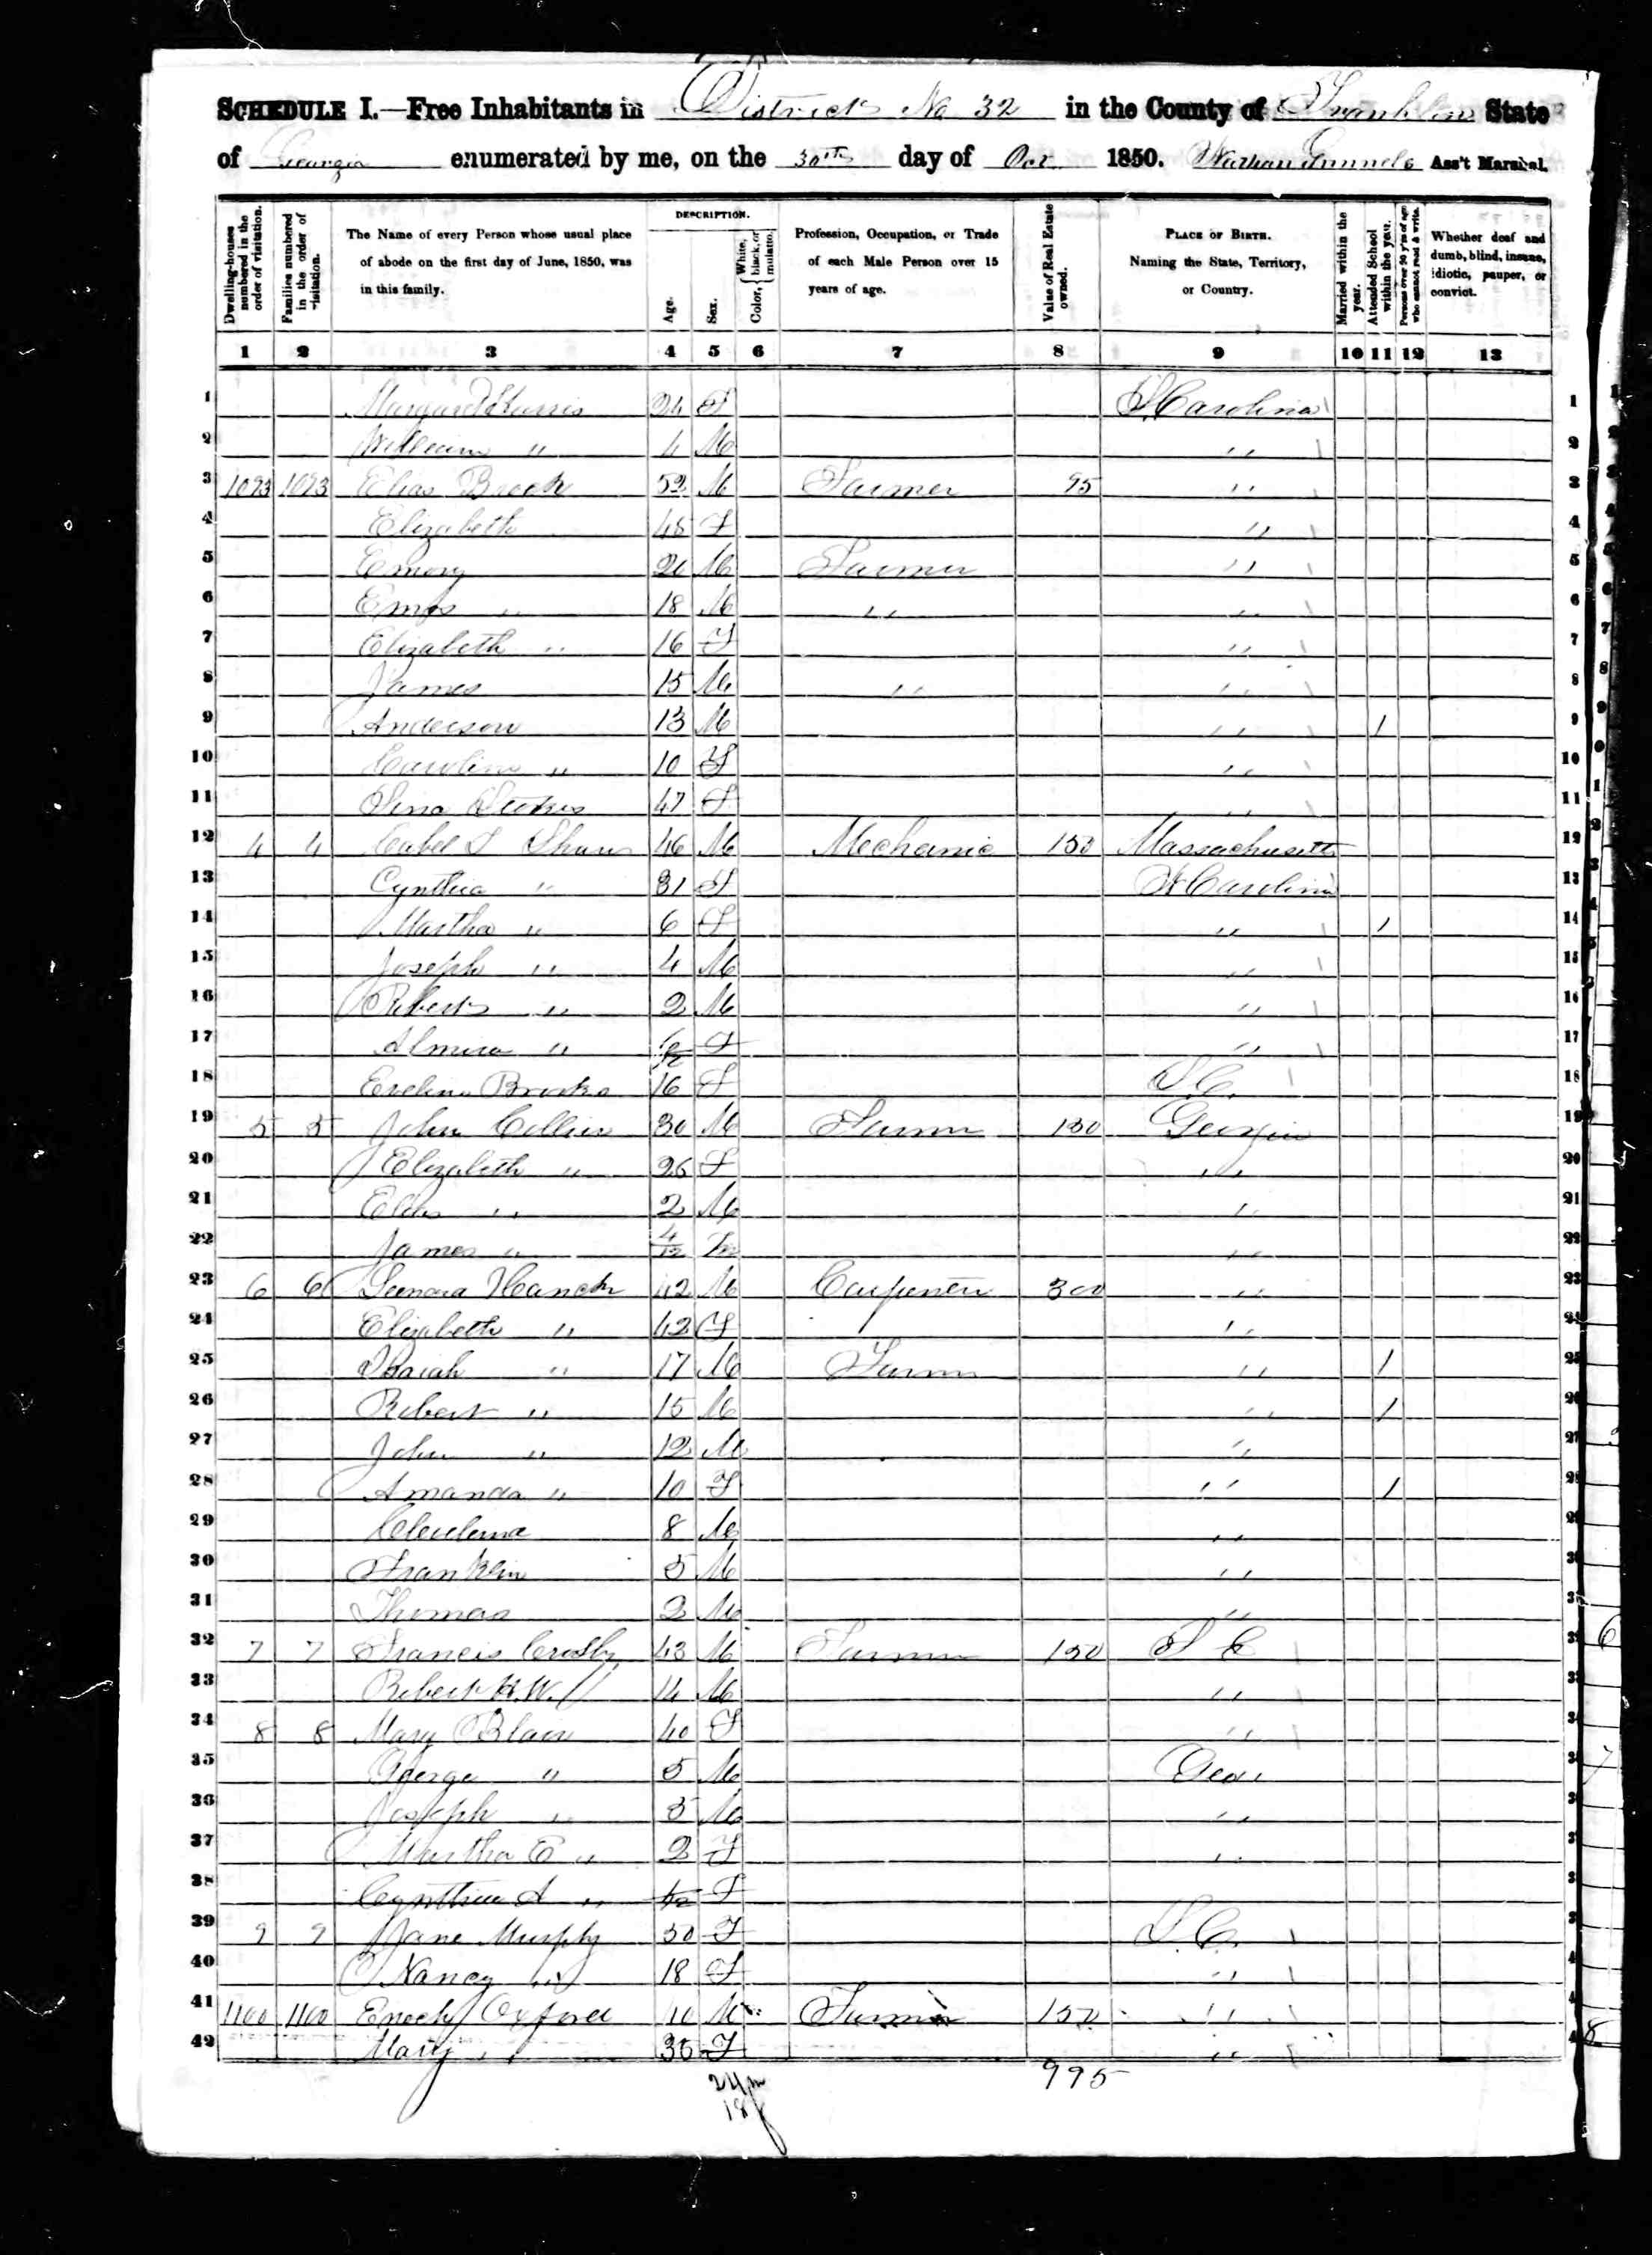 SCHEDULE I.—Free Inhabitants in District No 32 in the County of Franklin State
of Georgia enumerated by me, on the 30th day of Oct 1850. Ass't Marshal.
Dwelling-houses numbered in the order of visitation.
Families numbered in the order of visitation.
The Name of every Person whose usual place of abode on the first day of June, 1850, was in this family.
DESCRIPTION.
Age.
Sex.
Color, { White, black, or mulatto.
Profession, Occupation, or Trade of each Male Person over 15 years of age.
Value of Real Estate owned.
PLACE OF BIRTH. Naming the State, Territory, or Country.
Married within the year.
Attended School within the year.
Persons over 20 y'rs of age who cannot read & write.
Whether deaf and dumb, blind, insane, idiotic, pauper, or convict.
1 2 3 4 5 6 7 8 9 10 11 12 13
1 Margaret Harris 24 F S Carolina 1
2 William " 4 M " 2
3 1093 1093 Elias Brook 52 M Farmer 95 " 3
4 Elizabeth 48 F " 4
5 Emory 20 M Farmer " 5
6 " 18 M " " 6
7 Elizabeth " 16 F " 7
8 James 15 M " " 8
9 Anderson 13 M " 1 9
10 Caroline " 10 F " 10
11 47 F " 11
12 4 4 Shaw 46 M Mechanic 150 Massachusetts 12
13 Cynthia " 31 F Carolina 13
14 Martha " 6 F " 1 14
15 Joseph " 4 M " 15
16 Robert " 2 M " 16
17 Almira " F " 17
18 Eveline Brooks 16 F S.C. 18
19 5 5 John Collier 30 M Farmer 150 Georgia 19
20 Elizabeth " 26 F " 20
21 " 2 M " 21
22 James " 4/12 M " 22
23 6 6 42 M Carpenter 300 " 23
24 Elizabeth " 42 F " 24
25 Isaiah " 17 M Farmer " 1 25
26 Robert " 15 M " 1 26
27 John " 12 M " 27
28 Amanda " 10 F " 1 28
29 8 M " 29
30 Franklin 5 M "
31 Thomas 2 M "
32 7 7 Francis Crosby 43 M Farmer 150 S C
33 Robert H.W. 14 M "
34 8 8 Mary Blair 40 F "
35 George " 5 M Geo.
36 Joseph " 3 M "
37 Martha E " 2 F "
38 Cynthia A " F
39 9 9 Jane Murphy 50 F S.C.
40 Nancy " 18 F "
41 1100 1100 Enoch Oxford 40 M Farmer 150 "
42 Mary " 35 F "
24m
18f
995